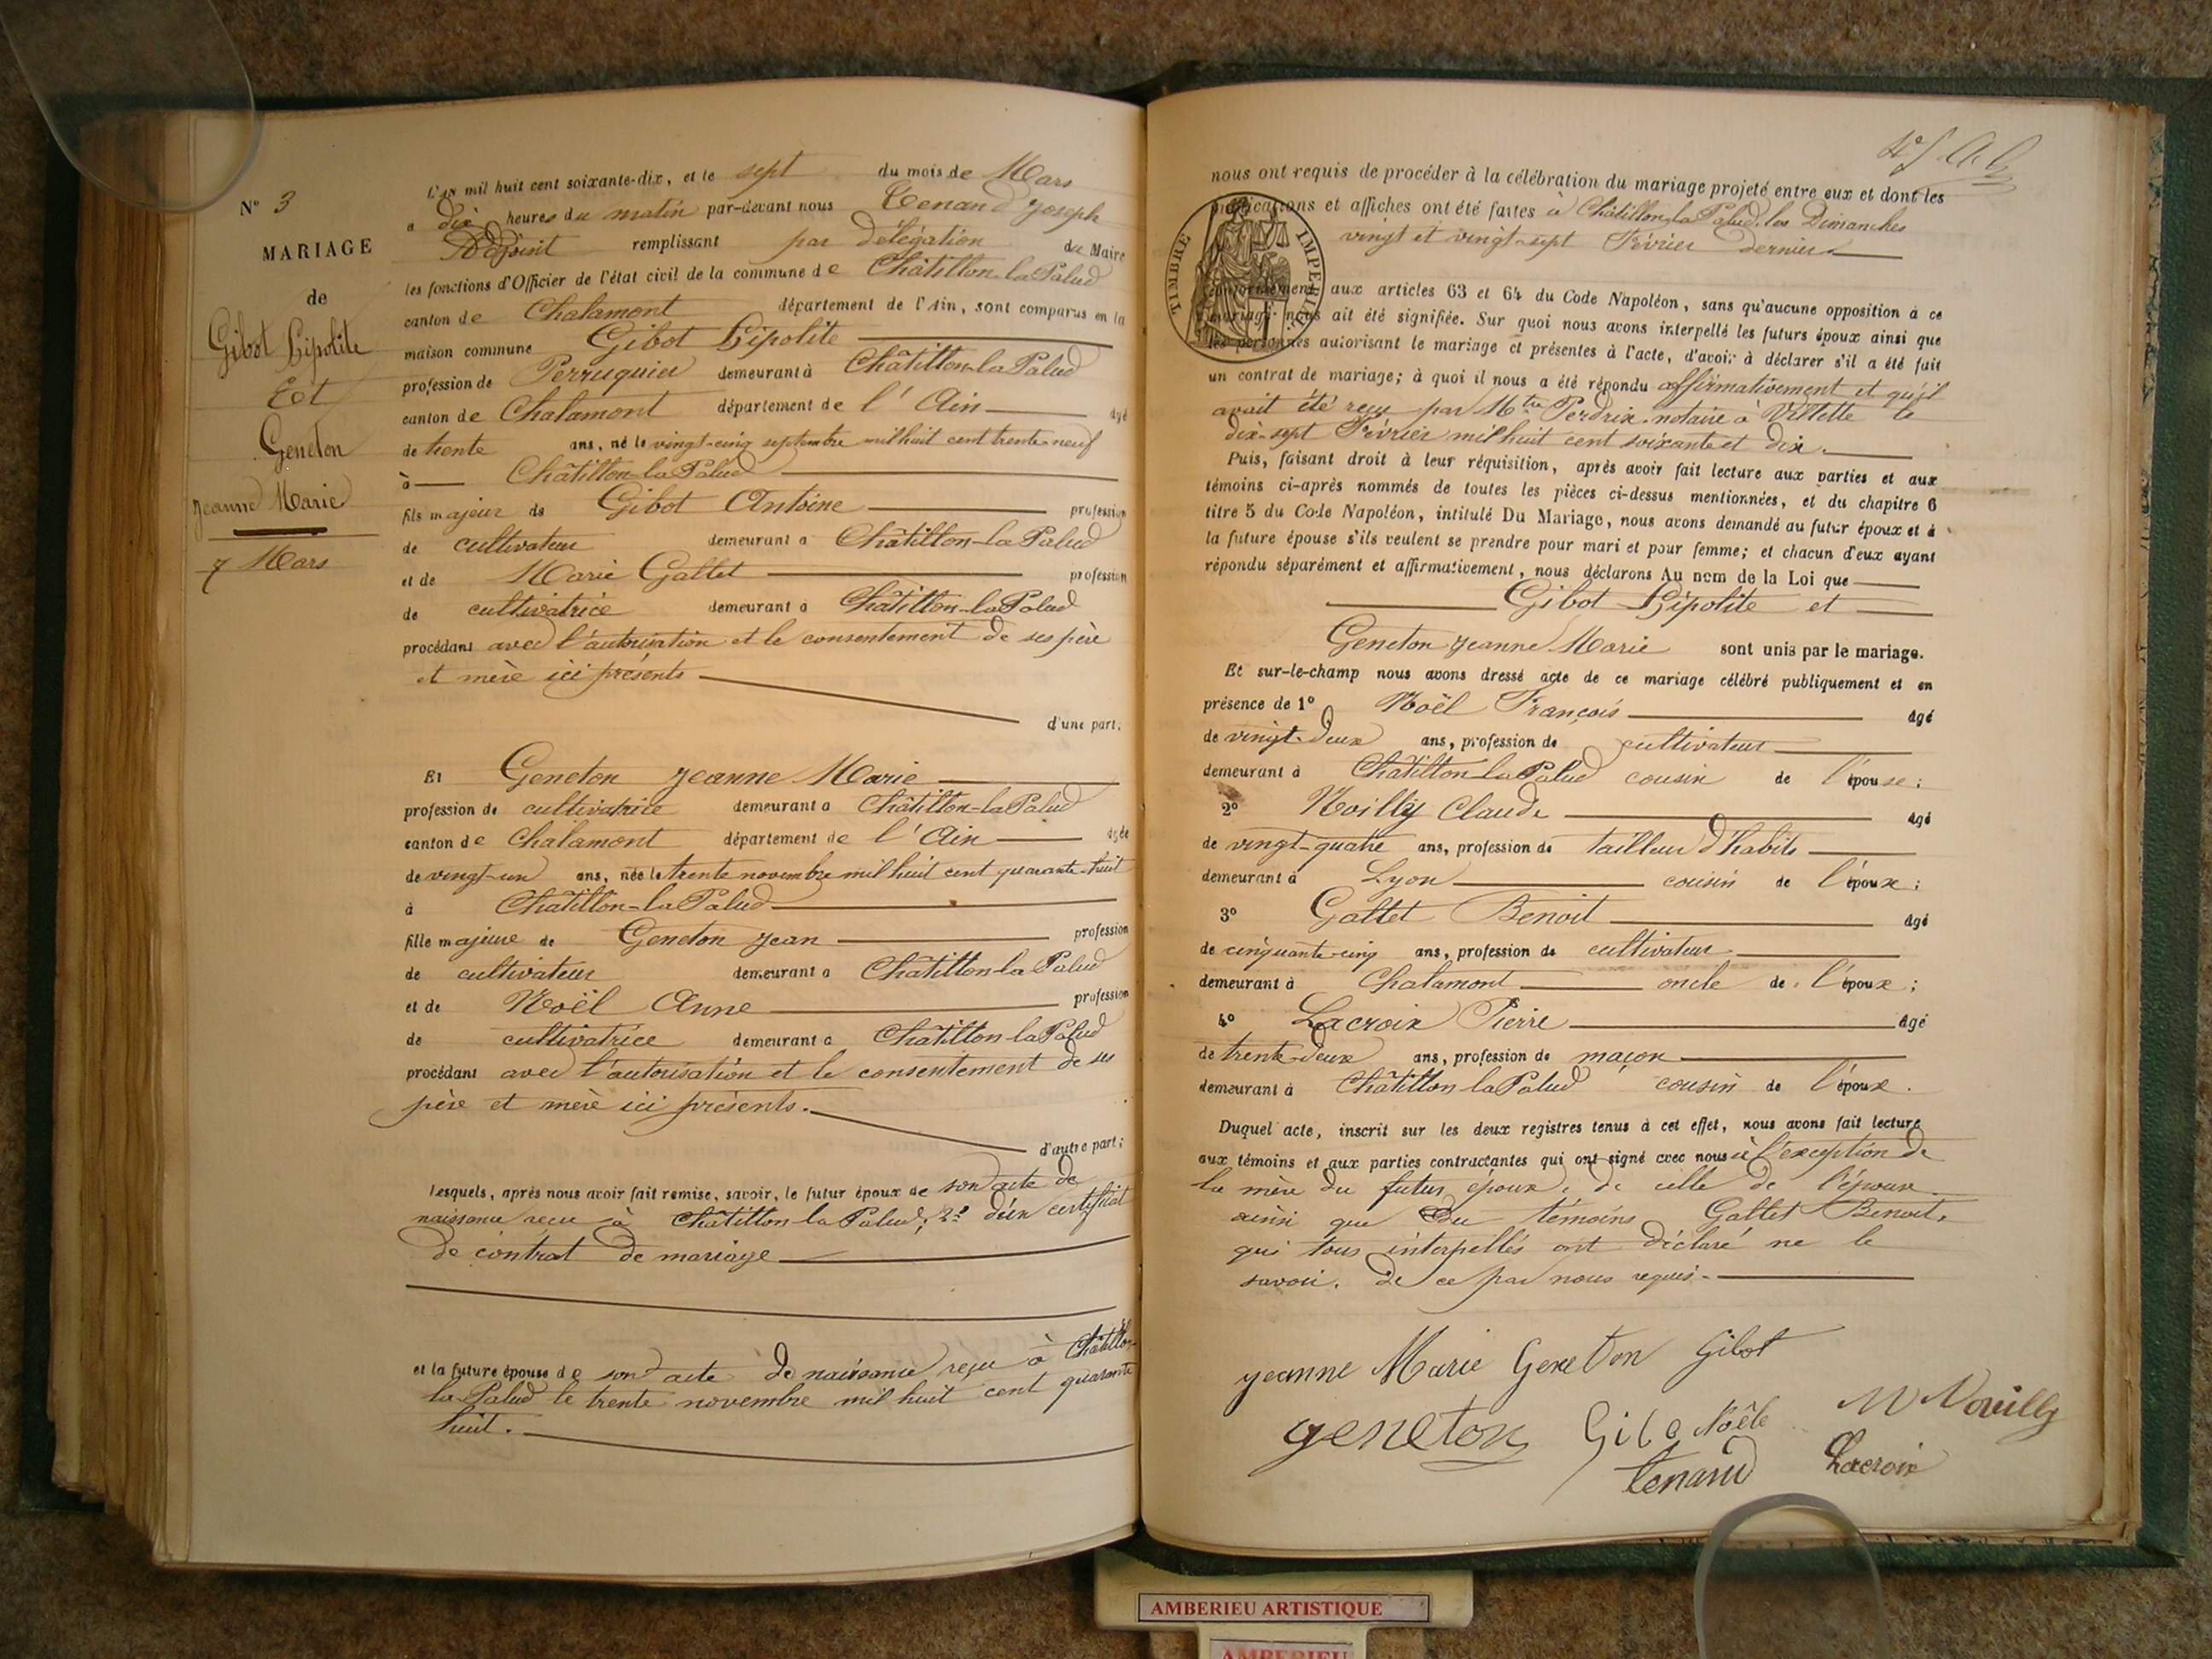 N° 3
MARIAGE
de
Gibot Hipolite
Et
Geneton
Jeanne Marie
7 Mars
L'an mil huit cent soixante-dix, et le sept du mois de Mars
a dix heures du matin par-devant nous Tenand Joseph
Adjoint remplissant par délégation du Maire
les fonctions d'Officier de l'état civil de la commune de Châtillon-la-Palud
canton de Chalamont département de l'Ain, sont comparus en la
maison commune Gibot Hipolite
profession de Perruquier demeurant à Châtillon-la-Palud
canton de Chalamont département de l'Ain âgé
de trente ans, né le vingt-cinq septembre mil huit cent trente-neuf
à Châtillon-la-Palud
fils majeur de Gibot Antoine profession
de cultivateur demeurant a Châtillon-la-Palud
et de Marie Galtet profession
de cultivatrice demeurant à Châtillon-la-Palud
procédant avec l'autorisation et le consentement de ses père
et mère ici présents
d'une part;
Et Geneton Jeanne Marie
profession de cultivatrice demeurant a Châtillon-la-Palud
canton de Chalamont département de l'Ain âgée
de vingt-un ans, née le trente novembre mil huit cent quarante-huit
à Châtillon-la-Palud
fille majeure de Geneton Jean profession
de cultivateur demeurant a Châtillon-la-Palud
et de Noël Anne profession
de cultivatrice demeurant a Châtillon-la-Palud
procédant avec l'autorisation et le consentement de ses
père et mère ici présents.
d'autre part;
lesquels, après nous avoir fait remise, savoir, le futur époux de son acte de
naissance reçu à Châtillon-la-Palud; 2° d'un certificat
de contrat de mariage
et la future épouse de son acte de naissance reçu à Châtillon-
la-Palud le trente novembre mil huit cent quarante
huit.
nous ont requis de procéder à la célébration du mariage projeté entre eux et dont les
publications et affiches ont été faites à Châtillon-la-Palud, les Dimanches
vingt et vingt-sept Février dernier
TIMBRE IMPERIAL
conformément aux articles 63 et 64 du Code Napoléon, sans qu'aucune opposition à ce
mariage nous ait été signifiée. Sur quoi nous avons interpellé les futurs époux ainsi que
les personnes autorisant le mariage et présentes à l'acte, d'avoir à déclarer s'il a été fait
un contrat de mariage; à quoi il nous a été répondu affirmativement et qu'il
avait été reçu par Mtre Perdrix notaire à Villette le
dix-sept Février mil huit cent soixante et dix.
Puis, faisant droit à leur réquisition, après avoir fait lecture aux parties et aux
témoins ci-après nommés de toutes les pièces ci-dessus mentionnées, et du chapitre 6
titre 5 du Code Napoléon, intitulé Du Mariage, nous avons demandé au futur époux et à
la future épouse s'ils veulent se prendre pour mari et pour femme; et chacun d'eux ayant
répondu séparément et affirmativement, nous déclarons Au nom de la Loi que
Gibot Hipolite et
Geneton Jeanne Marie sont unis par le mariage.
Et sur-le-champ nous avons dressé acte de ce mariage célébré publiquement et en
présence de 1° Noël François âgé
de vingt-deux ans, profession de cultivateur
demeurant à Châtillon-la-Palud cousin de l'épouse;
2° Noilly Claude âgé
de vingt-quatre ans, profession de tailleur d'habits
demeurant à Lyon cousin de l'époux;
3° Galtet Benoit âgé
de cinquante-cinq ans, profession de cultivateur
demeurant à Chalamont oncle de l'époux;
4° Lacroix Pierre âgé
de trente-deux ans, profession de maçon
demeurant à Châtillon-la-Palud cousin de l'époux.
Duquel acte, inscrit sur les deux registres tenus à cet effet, nous avons fait lecture
aux témoins et aux parties contractantes qui ont signé avec nous à l'exception de
la mère du futur époux, de celle de l'épouse
ainsi que du témoins Galtet Benoit,
qui tous interpellés ont déclaré ne le
savoir. de ce par nous requis.
Jeanne Marie Geneton Gibot
geneton Noêle Nouilly
tenand Lacroix
AMBERIEU ARTISTIQUE
AMBERIEU